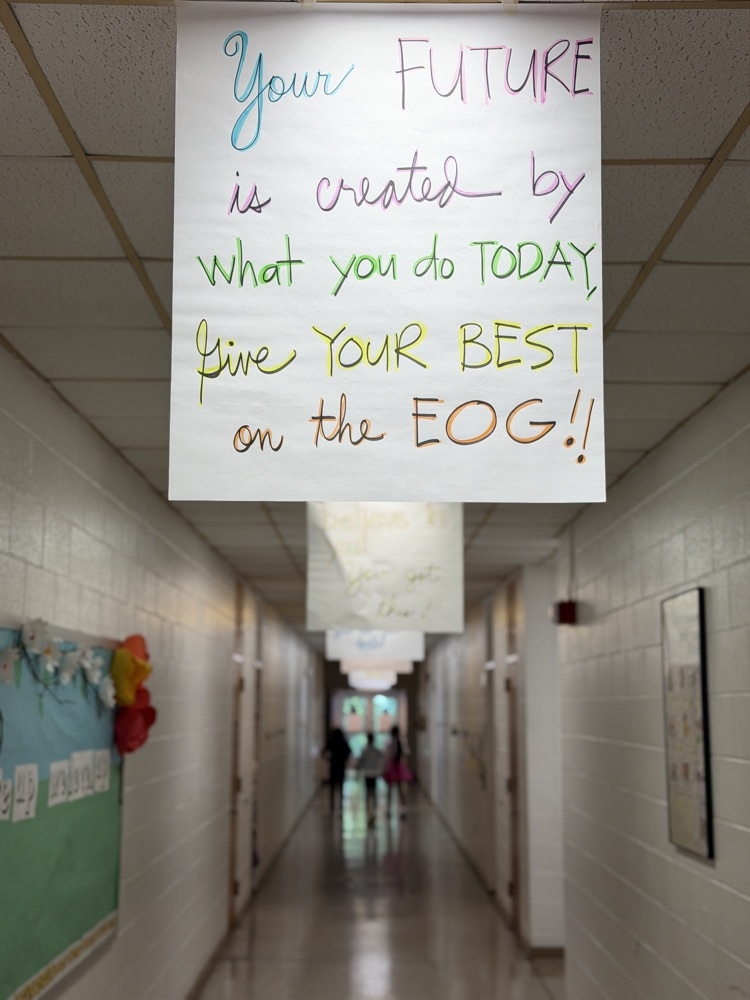 Your FUTURE
is created by
what you do TODAY,
Give YOUR BEST
on the EOG!!
believe in
you got
this!